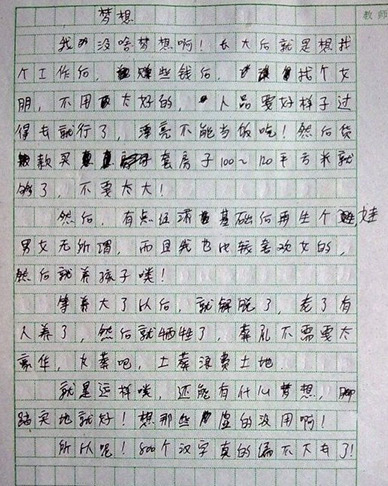 梦想
教师
我没啥梦想啊！长大后就是想找
个工作后，赚些钱后，找个女
朋，不用太好的，人品要好样子过
得去就行了，漂亮不能当饭吃！然后贷
款买套房子100～120平方米就
够了，不要太大！
然后，有点经济基础后再生个娃
男女无所谓，而且我也比较喜欢女的，
然后就养孩子喽！
等养大了以后，就解脱了，老了有
人养了，然后就牺牲了，葬礼不需要太
豪华，火葬吧，土葬浪费土地。
就是这样喽，还能有什么梦想，脚
踏实地就好！想那些虚的没用啊！
所以呢！800个汉字真的编不下去了！